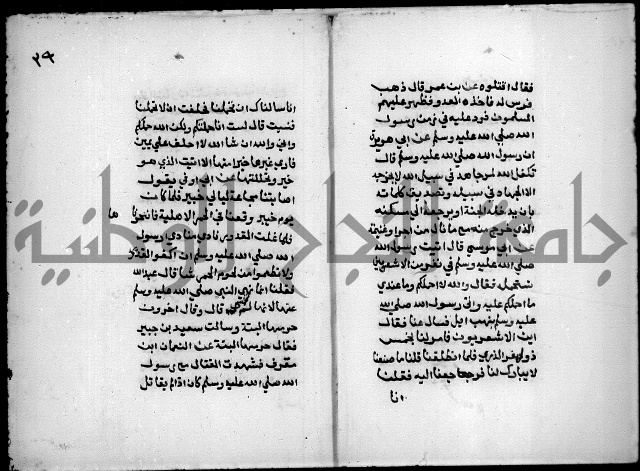 فقال اقتلوه عن بن عمر قال ذهب
فرس له فاخذه العدو فظهر عليهم
المسلمون فرد عليه في زمن رسول
الله صلي الله عليه وسلم عن ابي هريرة
ان رسول الله صلي الله عليه وسلم قال
تكفل الله لمن جاهد في سبيل الله لا يخرجه
الا الجهاد في سبيله وتصديق كلماته
بان يدخله الجنة او يرجعه الي مسكنه
الذي خرج منه مع ما نال من اجر او غنيمة
عن ابي موسي قال اتيت رسول الله
صلي الله عليه وسلم في نفر من الاشعريين
نستحمله فقال والله لا احملكم وما عندي
ما احملكم عليه واتي رسول الله صلي الله
عليه وسلم بنهب ابل فسال عنا فقال
اين الاشعريون فامر لنا بخمس
ذود غر الذري فلما انطلقنا قلنا ما صنعنا
لا يبارك لنا فرجعنا اليه فقلنا
انا
٢٩
انا سالناك ان تحملنا فحلفت ان لا تحملنا
فنسيت قال لست انا حملتكم ولكن الله حملكم
واني والله ان شا الله لا احلف علي يمين
فاري غيرها خيرا منها الا اتيت الذي هو
خير وتحللتها عن ابي اوفي يقول
اصابتنا مجاعة ليالي خيبر فلما كان
يوم خيبر وقعنا في الحمر الاهلية فانتحرنا
ها
فلما غلت القدور نادي منادي رسول
الله صلي الله عليه وسلم ان اكفو القدور
ولا تطعموا من لحوم الحمر شيا قال عبد الله
فقلنا انما نهي النبي صلي الله عليه وسلم
عنها لانها لم تخمس قال وقال اخرون
حرمها البتة وسالت سعيد بن جبير
فقال حرمها البتة عن النعمان ابن
مقرن فشهدت القتال مع رسول
الله صلي الله عليه وسلم كان اذا لم يقاتل
جامعة النجاح الوطنية